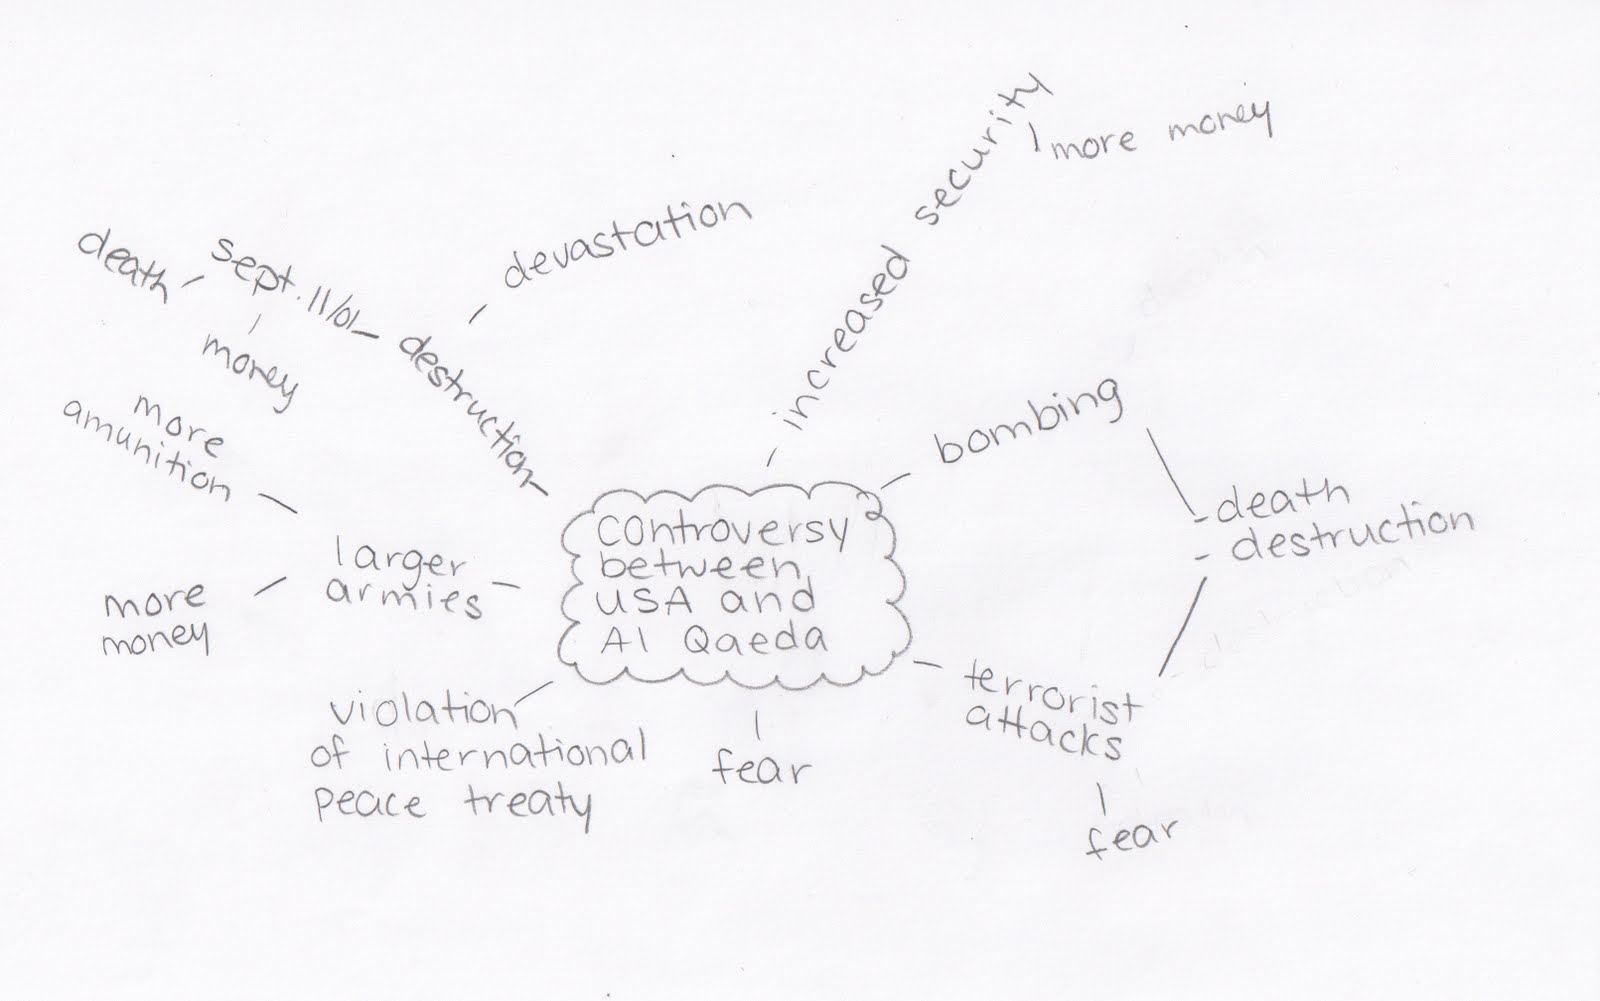 increased security
more money
devastation
death
sept. 11/01
destruction
money
more
amunition
bombing
death
destruction
controversy
between
USA and
Al Qaeda
larger
armies
more
money
terrorist
attacks
violation
of international
peace treaty
fear
fear